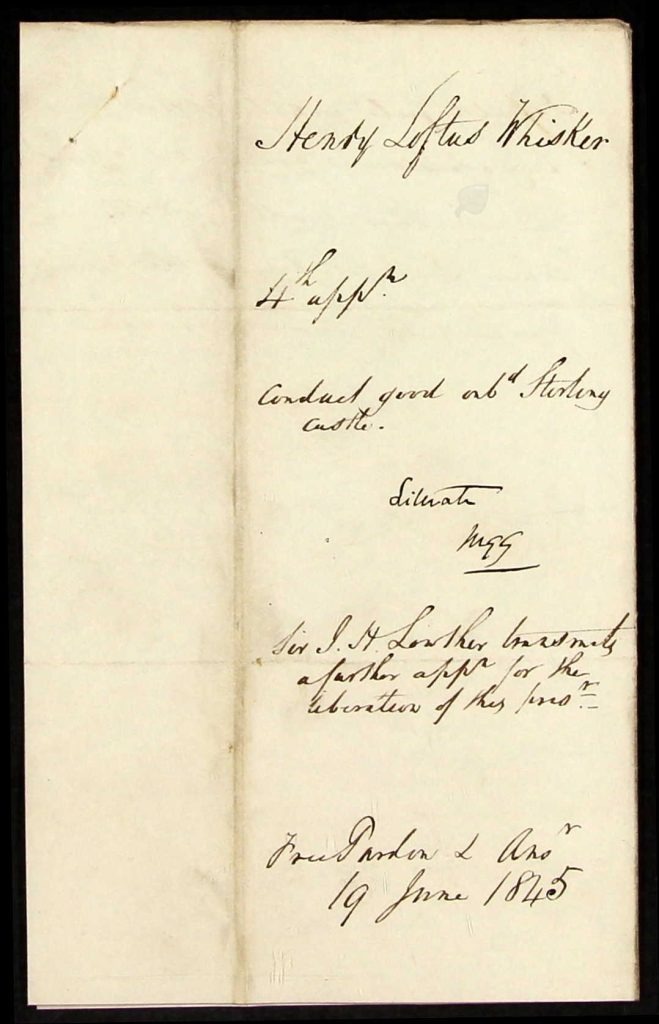 Henry Loftus Whisker
4th appn.
Conduct good onbd Stirling
Castle.
Liberate
Sir J. H. Lowther transmits
a further appn for the
liberation of this prisr.
Free Pardon & Ansr
19 June 1845